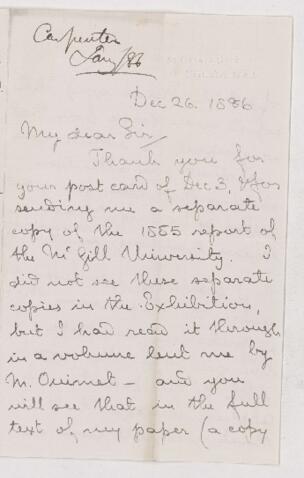 Carpenter
Jany/86
Dec 26. 1886
My dear Sir/
Thank you for
your post card of Dec 3, & for
sending me a separate
copy of the 1885 report of
the McGill University. I
did not see these separate
copies in the Exhibition,
but I had read it through
in a volume lent me by
M. Ouimet – and you
will see that in the full
text of my paper (a copy